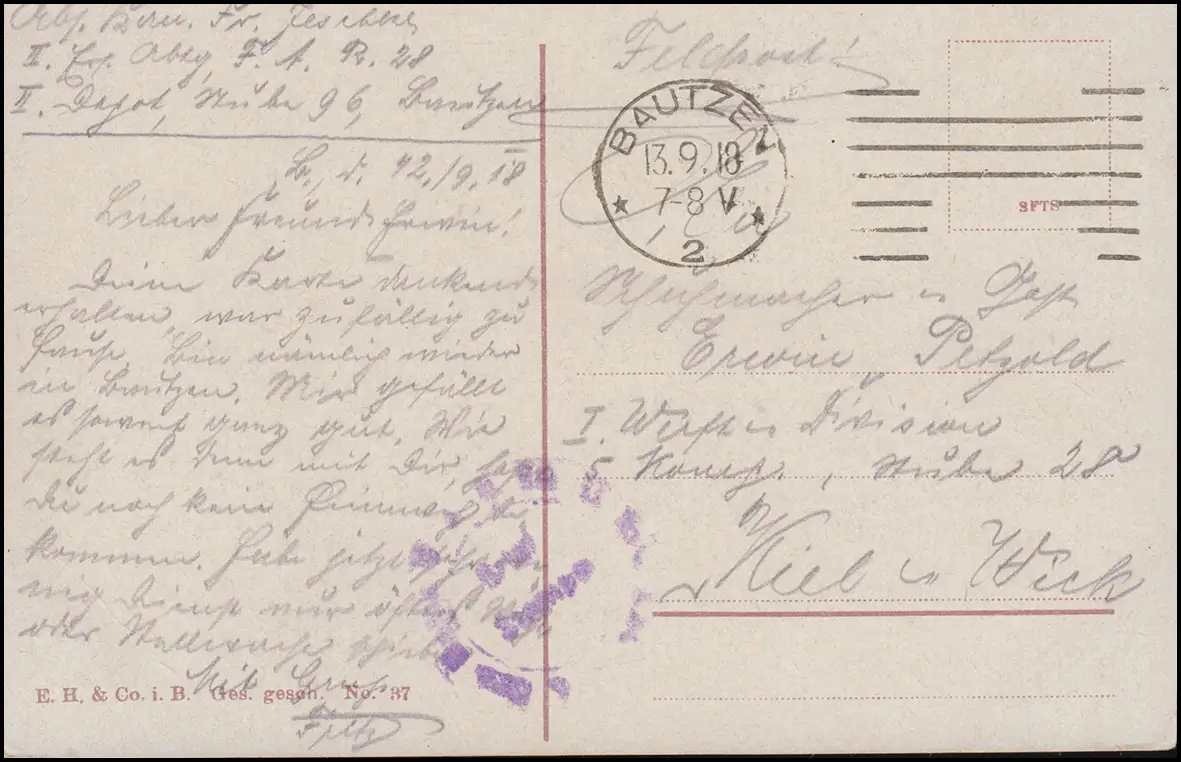 Abs. Kan. Fr. Jeschke
II. Ers. Abtg. F. A. R. 28
II. Depot, Stube 96, Bautzen
B., d. 12./9. 18
Lieber Freund Erwin!
Deine Karte dankend
erhalten, war zufällig zu
Hause. Bin nämlich wieder
in Bautzen. Mir gefällt
es soweit ganz gut. Wie
steht es denn mit Dir, hast
Du noch kein
kommen. Habe jetzt sehr we
nig Dienst nur öfters
oder Stallwache schieben
Mit Gruß
Fritz
E. H. & Co. i. B. Ges. gesch. No. 37
Feldpost!
BAUTZEN
13.9.18
7-8 V
2
SFTS
Schuhmacher
Erwin Petzold
I. Werft = Division
5. Komp., Stube 28
Kiel = Wick